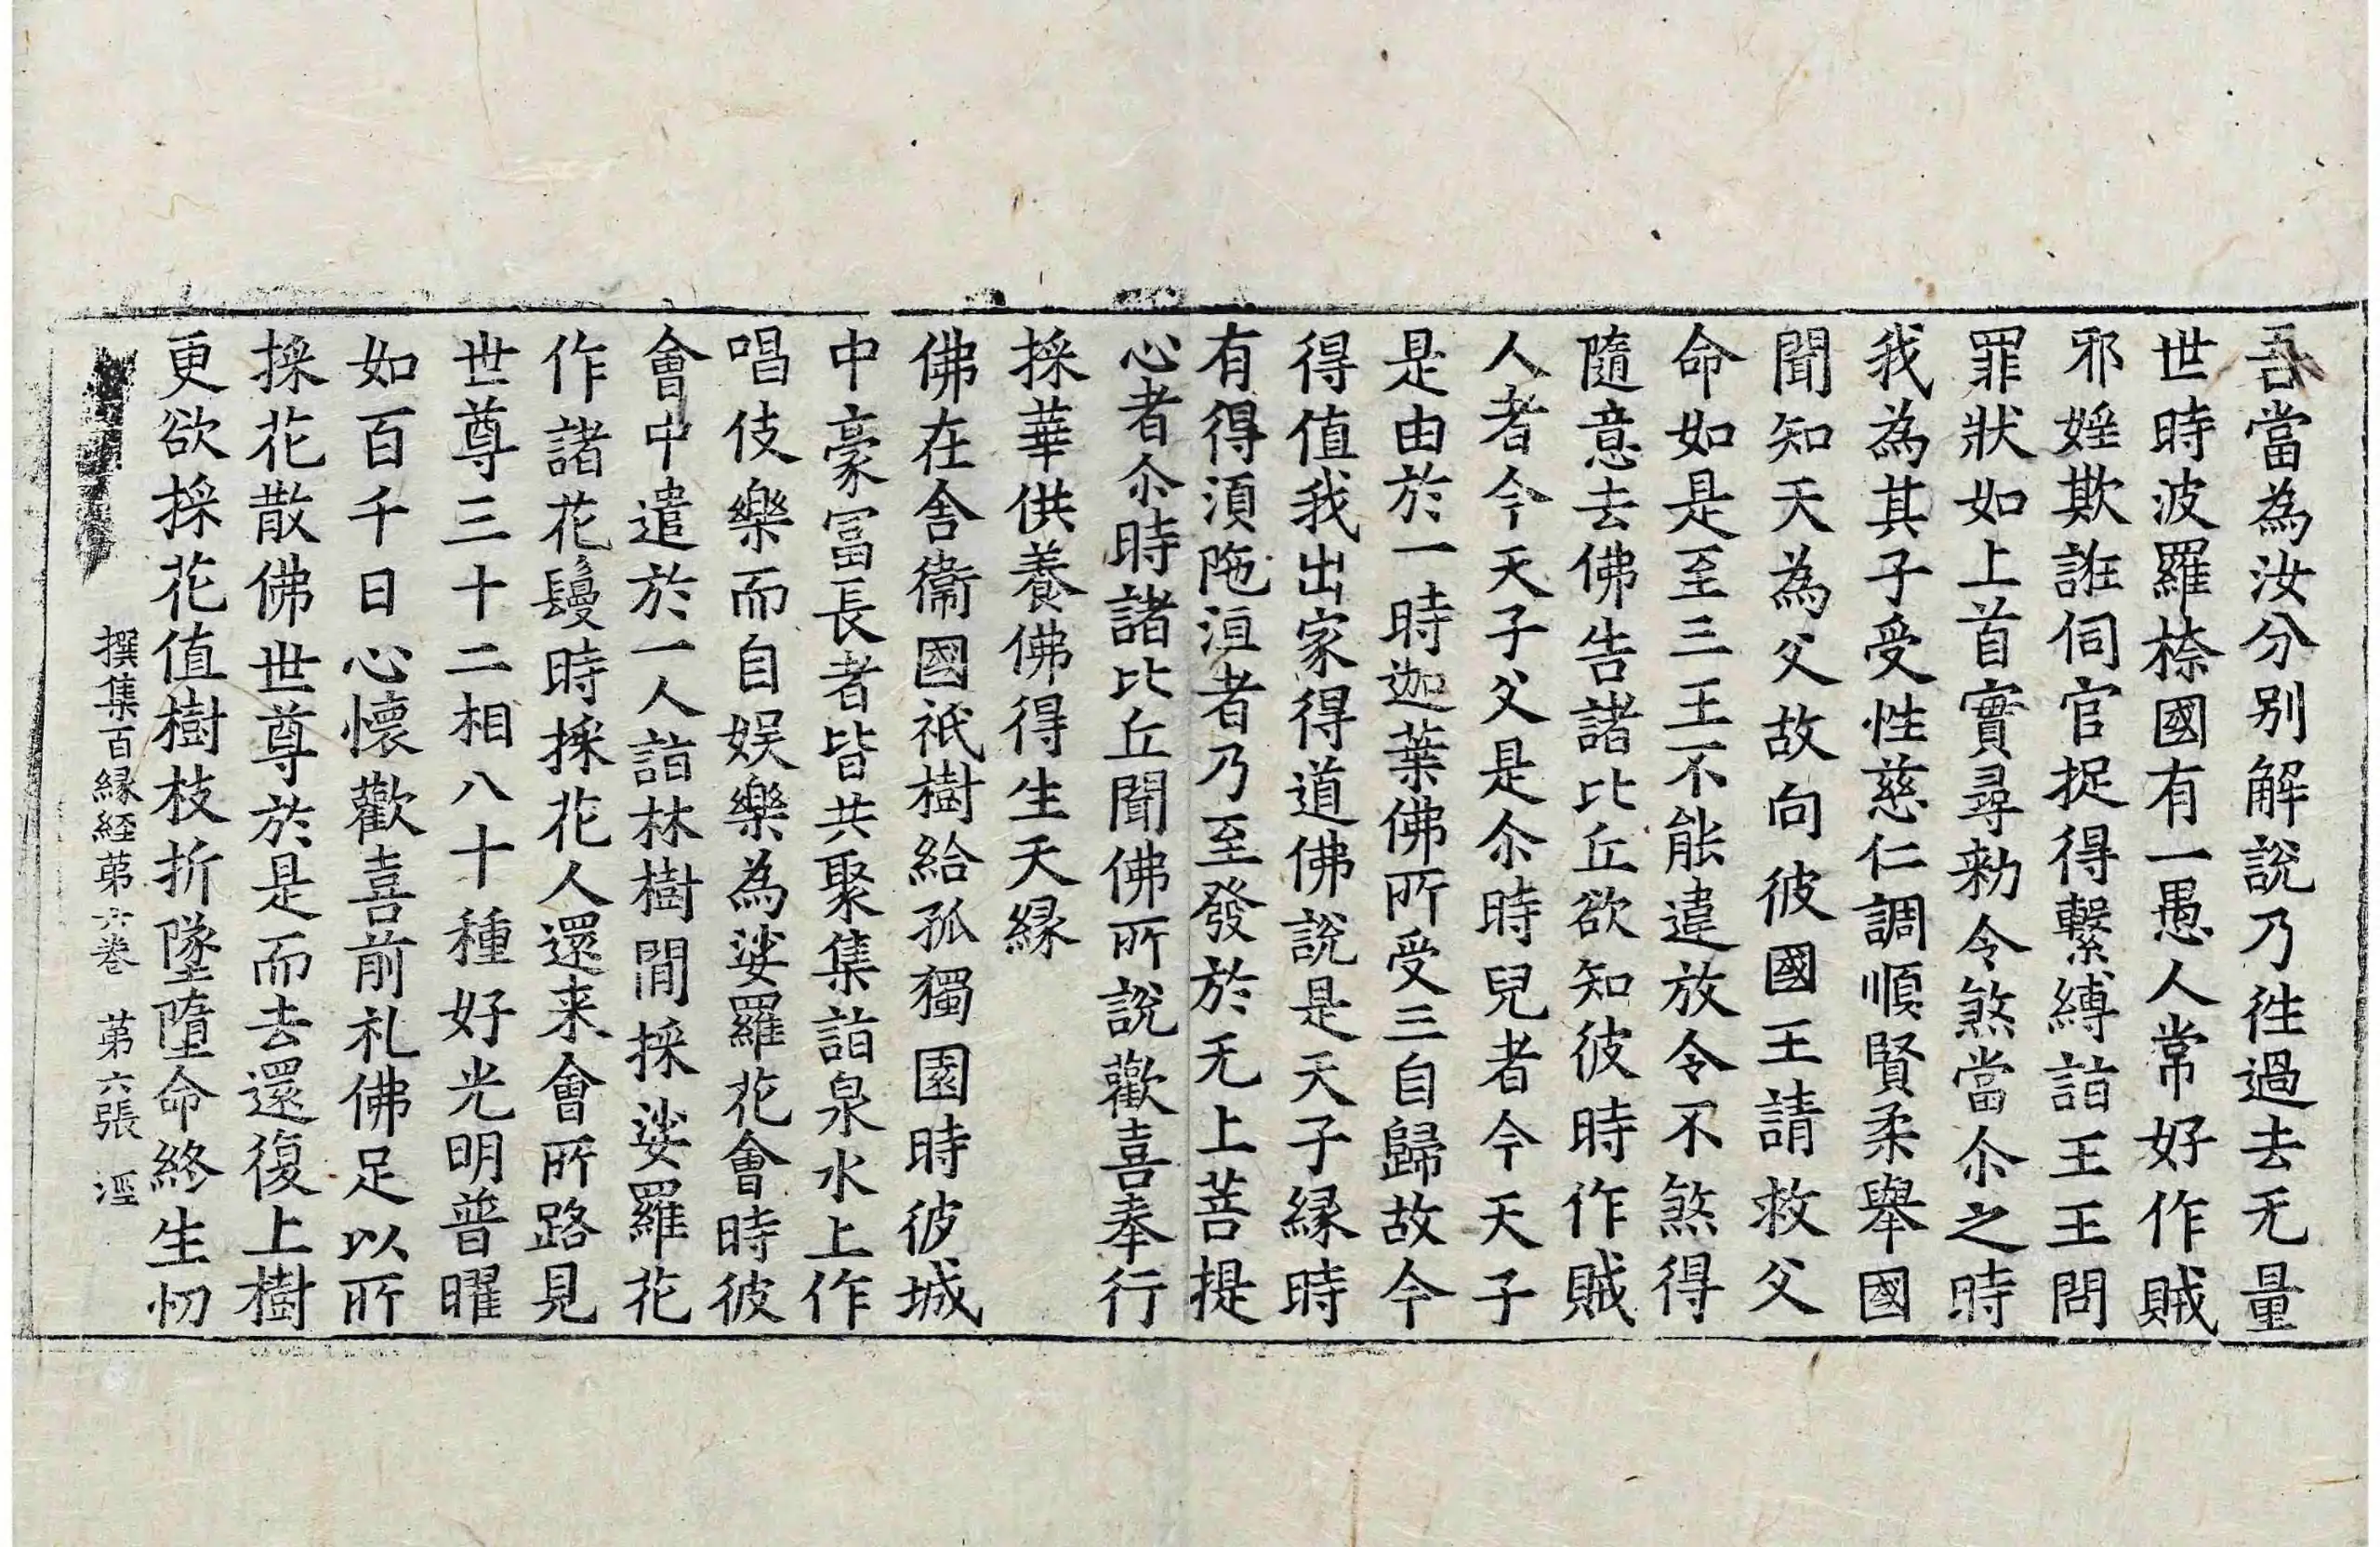 吾當為汝分別解說乃徃過去无量
世時波羅㮈國有一愚人常好作賊
邪婬欺誑伺官捉得繫縛詣王王問
罪狀如上首實尋勑令煞當尒之時
我為其子受性慈仁調順賢柔舉國
聞知天為父故向彼國王請救父
命如是至三王不能違放令不煞得
隨意去佛告諸比丘欲知彼時作賊
人者今天子父是尒時兒者今天子
是由於一時迦葉佛所受三自歸故今
得值我出家得道佛說是天子縁時
有得湏陁洹者乃至發於无上菩提
心者尒時諸比丘聞佛所說歡喜奉行
採華供養佛得生天縁
佛在舍衞國祇樹給孤獨園時彼城
中豪冨長者皆共聚集詣泉水上作
唱伎樂而自娱樂為娑羅花會時彼
會中遣於一人詣林樹間採娑羅花
作諸花鬘時採花人還来會所路見
世尊三十二相八十種好光明普曜
如百千日心懷歡喜前礼佛足以所
採花散佛世尊於是而去還復上樹
更欲採花值樹枝折墜墮命終生忉
撰集百縁經苐六巻 苐六張 涇